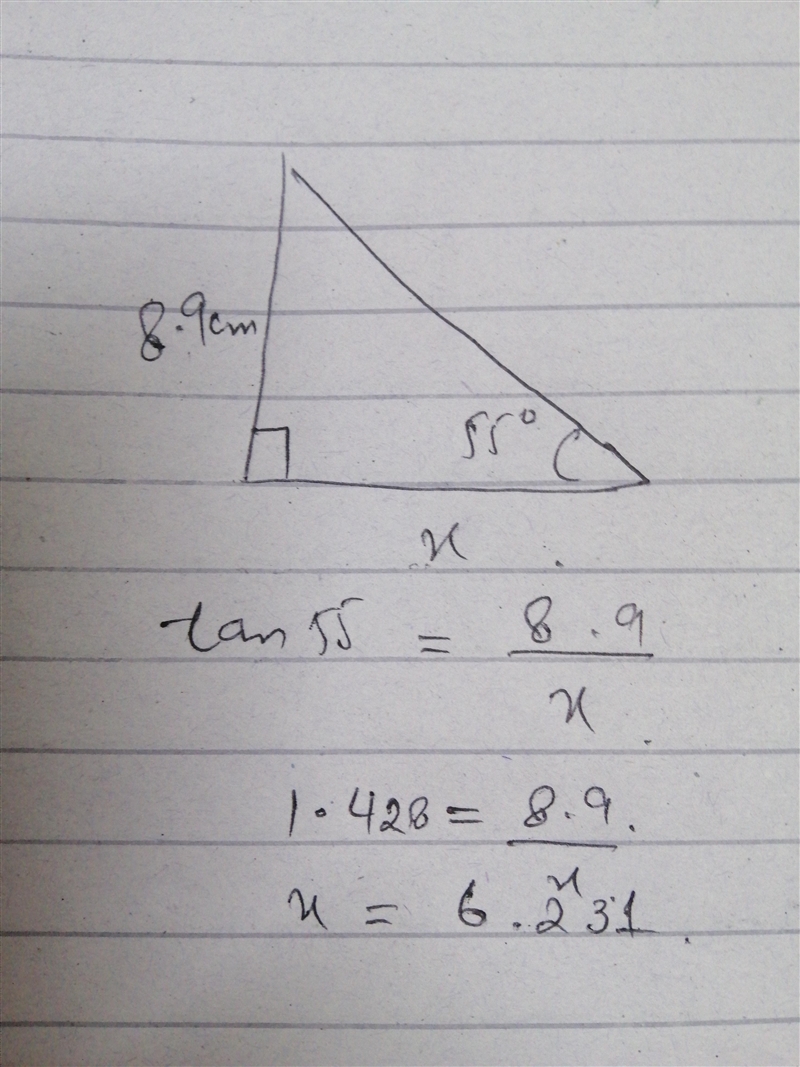 8.9cm
55°
x
tan 55 = 8.9 / x
1.428 = 8.9 / x
x = 6.231